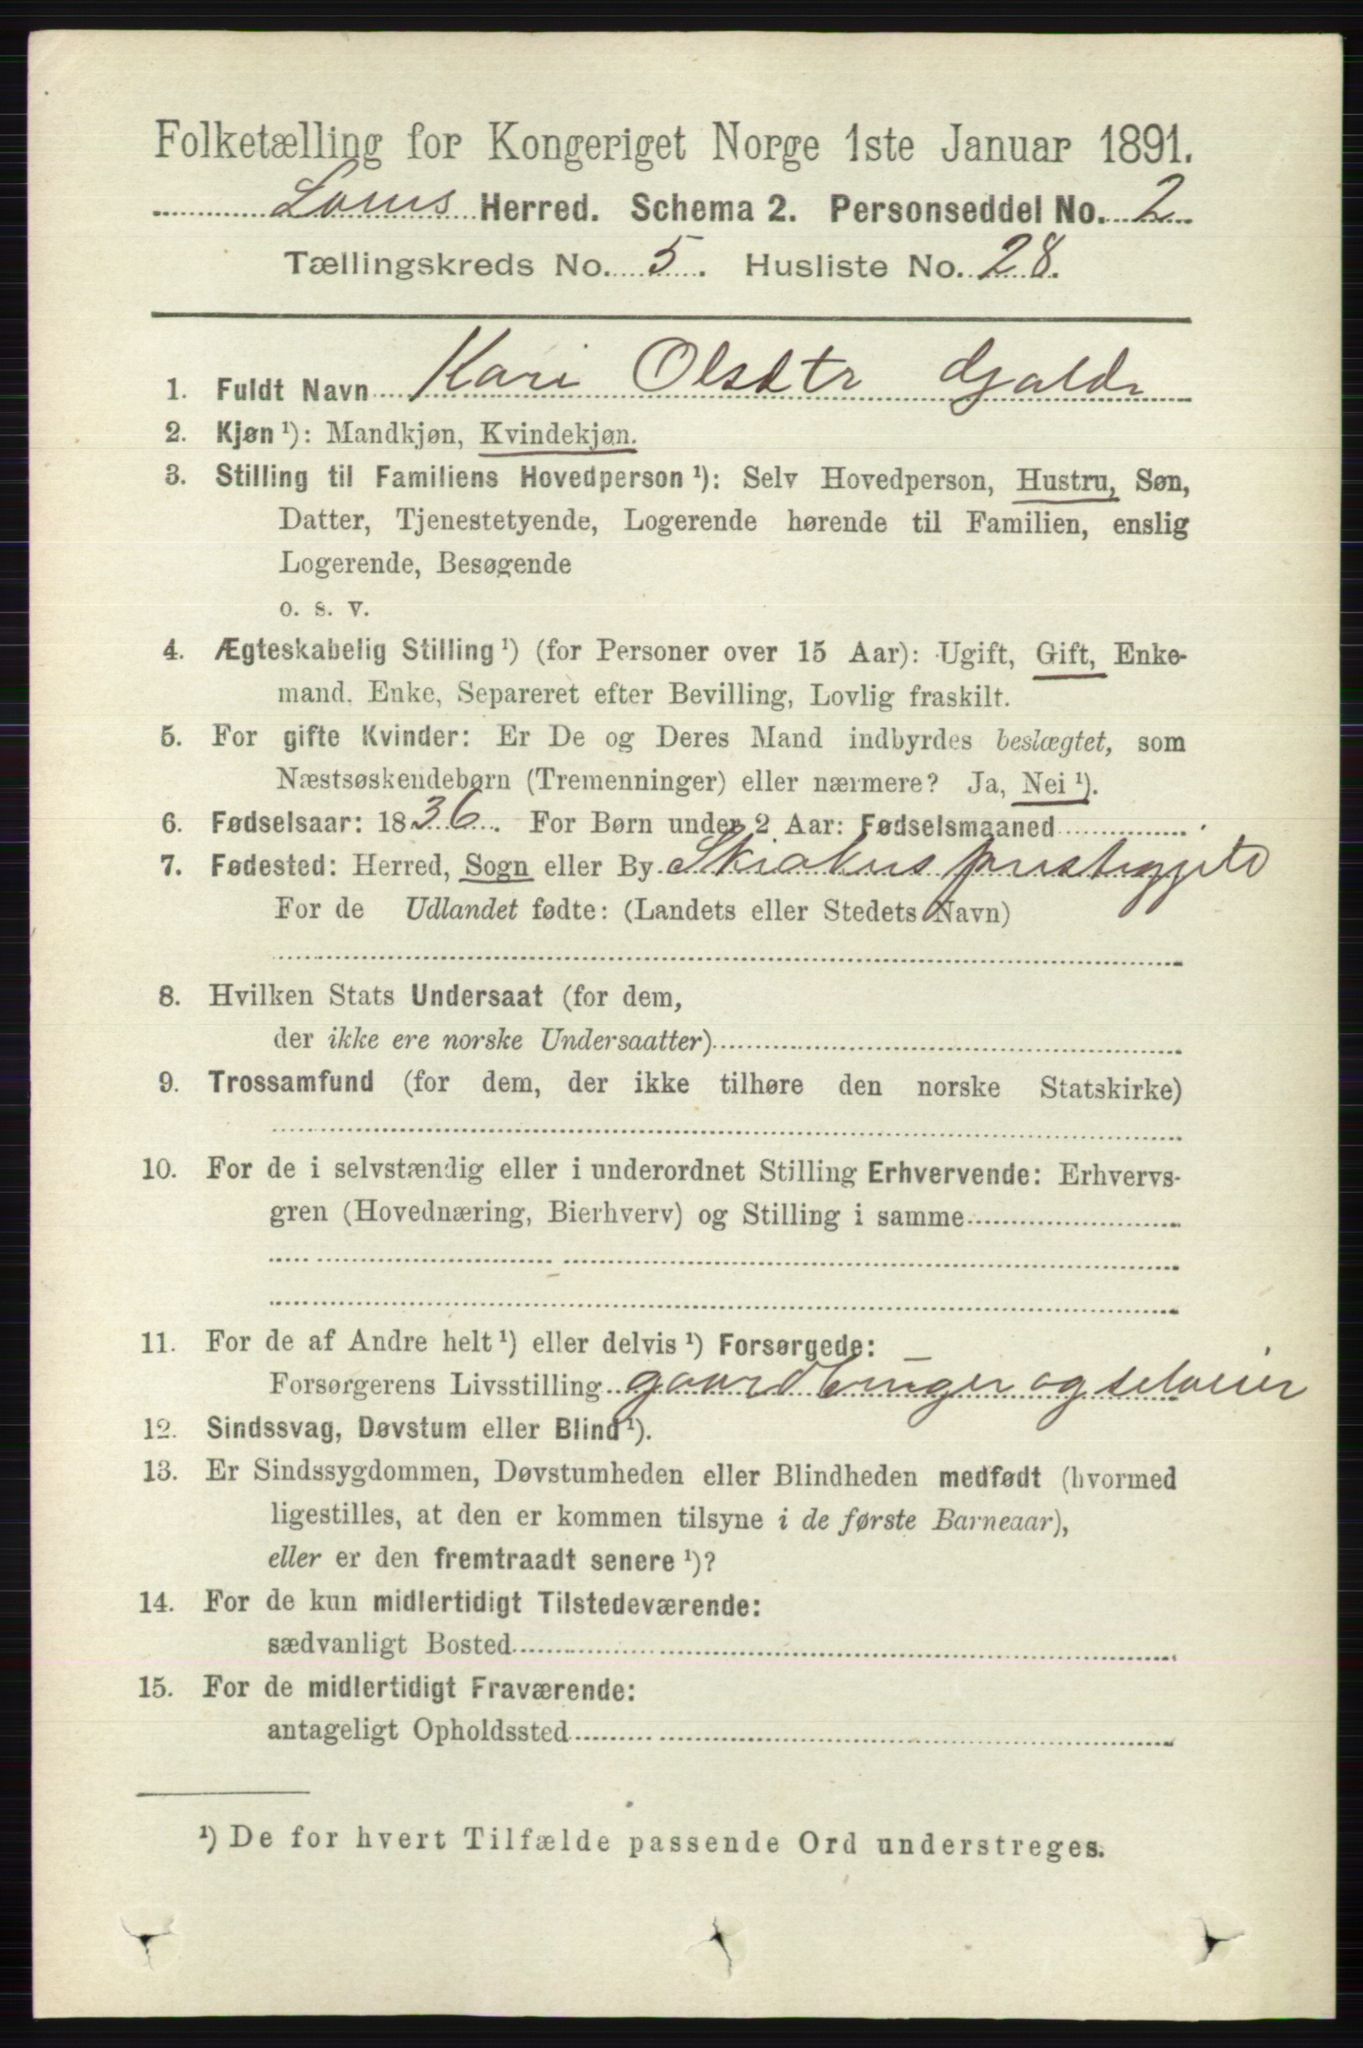 Folketælling for Kongeriget Norge 1ste Januar 1891.
Loms Herred. Schema 2. Personseddel No. 2
Tællingskreds No. 5. Husliste No. 28.
1. Fuldt Navn Kari Olsdtr Galde
2. Kjøn ¹): Mandkjøn, Kvindekjøn.
3. Stilling til Familiens Hovedperson ¹): Selv Hovedperson, Hustru, Søn,
Datter, Tjenestetyende, Logerende hørende til Familien, enslig
Logerende, Besøgende
o. s. v.
4. Ægteskabelig Stilling ¹) (for Personer over 15 Aar): Ugift, Gift, Enke-
mand, Enke, Separeret efter Bevilling, Lovlig fraskilt.
5. For gifte Kvinder: Er De og Deres Mand indbyrdes beslægtet, som
Næstsøskendebørn (Tremenninger) eller nærmere? Ja, Nei ¹).
6. Fødselsaar: 1836. For Børn under 2 Aar: Fødselsmaaned
7. Fødested: Herred, Sogn eller By Skiakers præstegjeld
For de Udlandet fødte: (Landets eller Stedets Navn)
8. Hvilken Stats Undersaat (for dem,
der ikke ere norske Undersaatter)
9. Trossamfund (for dem, der ikke tilhøre den norske Statskirke)
10. For de i selvstændig eller i underordnet Stilling Erhvervende: Erhvervs-
gren (Hovednæring, Bierhverv) og Stilling i samme
11. For de af Andre helt ¹) eller delvis ¹) Forsørgede:
Forsørgerens Livsstilling gaardbruger og selveier
12. Sindssvag, Døvstum eller Blind ¹).
13. Er Sindssygdommen, Døvstumheden eller Blindheden medfødt (hvormed
ligestilles, at den er kommen tilsyne i de første Barneaar),
eller er den fremtraadt senere ¹)?
14. For de kun midlertidigt Tilstedeværende:
sædvanligt Bosted
15. For de midlertidigt Fraværende:
antageligt Opholdssted
¹) De for hvert Tilfælde passende Ord understreges.